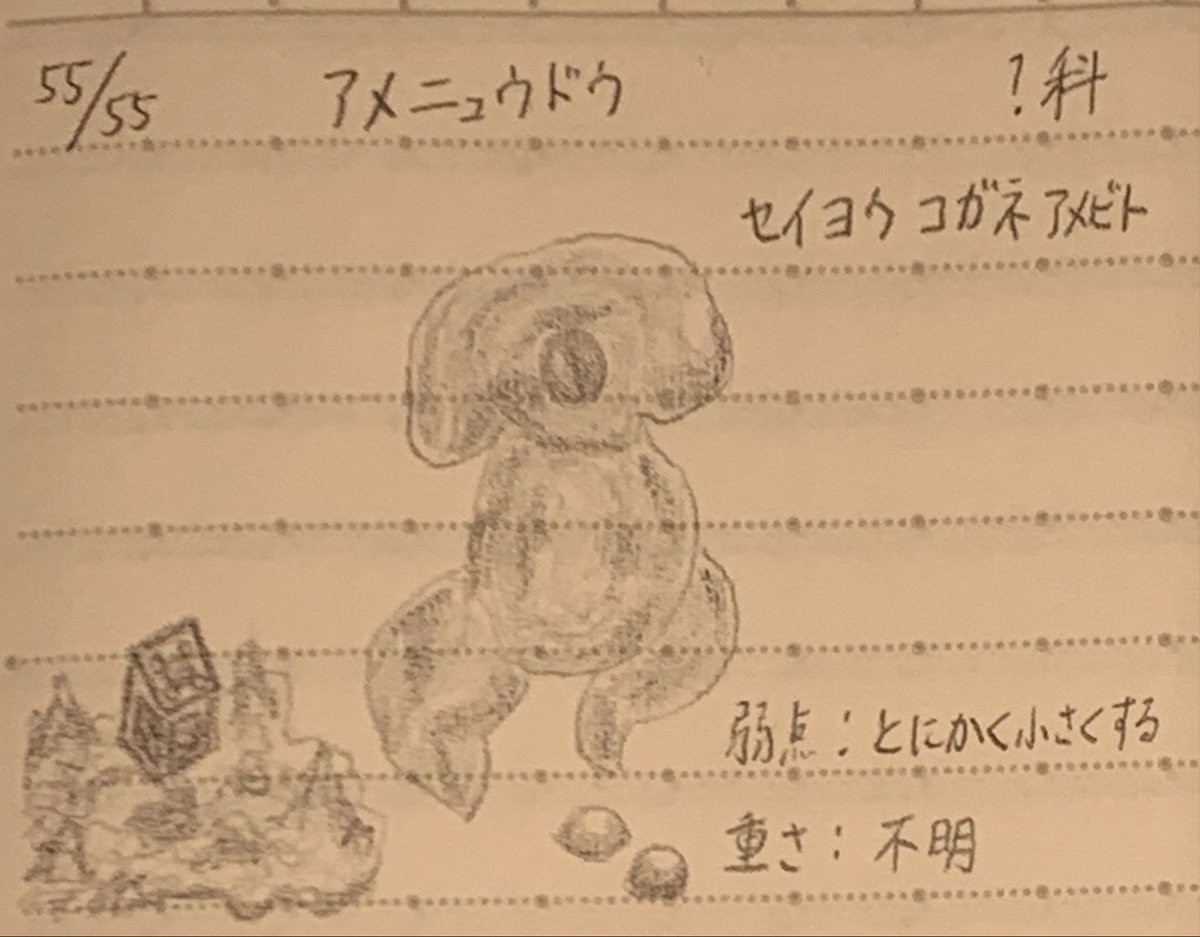 55/55 アメニュウドウ ?科
セイヨウコガネアメビト
弱点:とにかく小さくする
重さ:不明